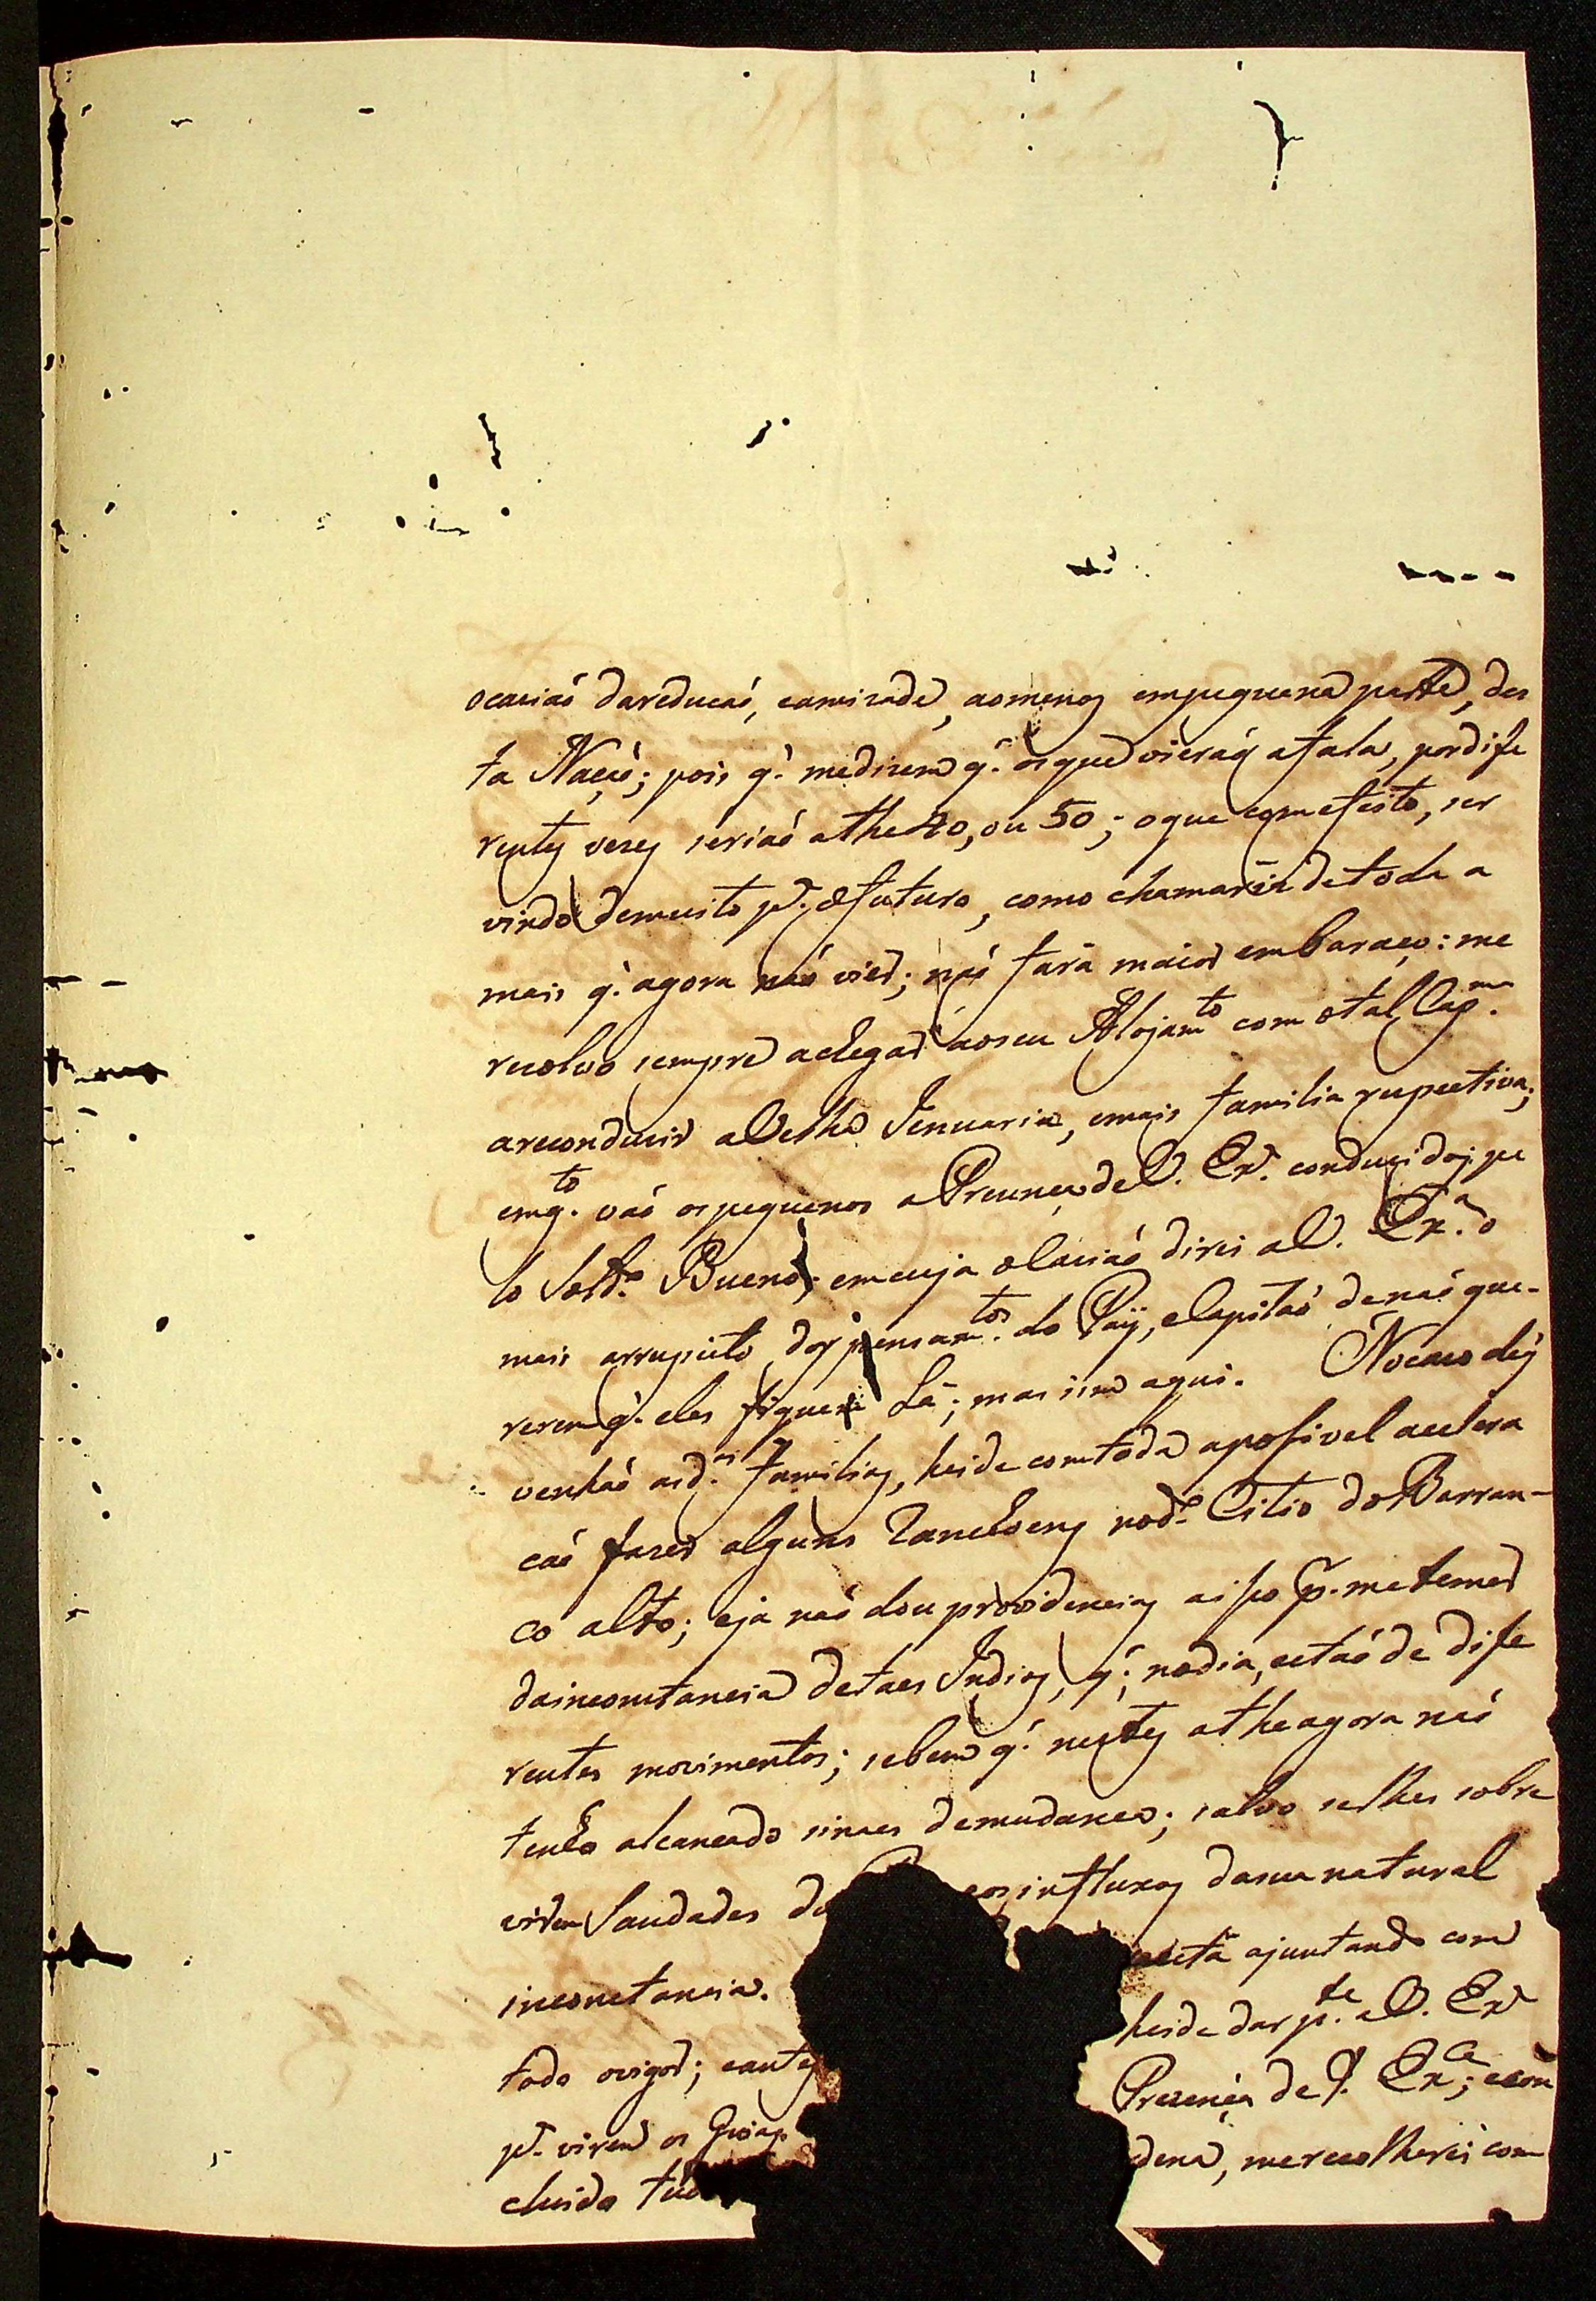 ocasiaõ dareducaõ, eamizade, aomenos empequena parte, des
ta Naçaõ; pois q̃. medizem q̃. osque vieraõ afala, pordife
rentes vezes seriaõ athe 40, ou 50; oque comefeito, ser
vindo demuito pᵃ. ofuturo, como chamaria detoda a
mais q̃. agora naõ vier; naõ fara maior embaraço: me
resolvo sempre achegar aoseu Alojamᵗᵒ com otal Capᵐ.
areconduzir aVelha Jenuaria, emais familia respectiva;
emqᵗᵒ. vaõ ospequenos aPrezença deV. Exᵃ. conduzidos pe
lo Soldᵒ. Bueno; emcuja ocasiaõ direi aV. Exᵃ. o
mais arrespeito dos pensamᵗᵒˢ. do Paÿ, eCapitaõ denaõ que-
rerem q̃. eles fiquem Lá; mas sim aqui. Nocaso deq̃
venhaõ asdᵃˢ. familias, heide comtoda aposivel acelera
caõ fazer alguns Ranchoens nodᵒ. Citio doBarran-
co alto; eja naõ dou providencias aiso p. metemer
dainconstancia detaes Indios, q̃; nodia, estaõ de dife
rentes movimentos; sebem q̃. nestes atheagora naõ
tenho alcançado sinaes demudança; salvo selhes sobre
virem Saudades do eos influxos dasua natural
inconstancia. está ajuntando com
todo origor; eantes heide dar pᵗᵉ. aV. Exᵃ
pᵃ. virem os Prezença de V. Exᶜᵃ; econ
cluido tudo dena, merecolherei com